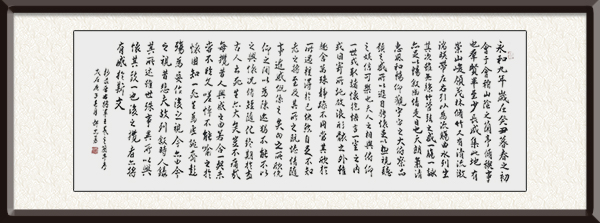 永和九年歲在癸丑暮春之初
會于會稽山陰之蘭亭脩禊事
也群賢畢至少長咸集此地有
崇山峻領茂林脩竹又有清流激
湍暎帶左右引以為流觴曲水列坐
其次雖無絲竹管弦之盛一觴一詠
亦足以暢敘幽情是日也天朗氣清
惠風和暢仰觀宇宙之大俯察品
類之盛所以遊目騁懷足以極視聽
之娛信可樂也夫人之相與俯仰
一世或取諸懷抱悟言一室之內
或因寄所託放浪形骸之外雖
趣舍萬殊靜躁不同當其欣於
所遇暫得於己快然自足不知
老之將至及其所之既惓情隨
事遷感慨係之矣向之所欣俛
仰之間以為陳迹猶不能不以
之興懷況脩短隨化終期於盡
古人云死生亦大矣豈不痛哉
每攬昔人興感之由若合一契未
嘗不臨文嗟悼不能喻之於
懷固知一死生為虛誕齊彭
殤為妄作後之視今亦由今
之視昔悲夫故列敘時人錄
其所述雖世殊事異所以興
懷其致一也後之攬者亦將
有感於斯文